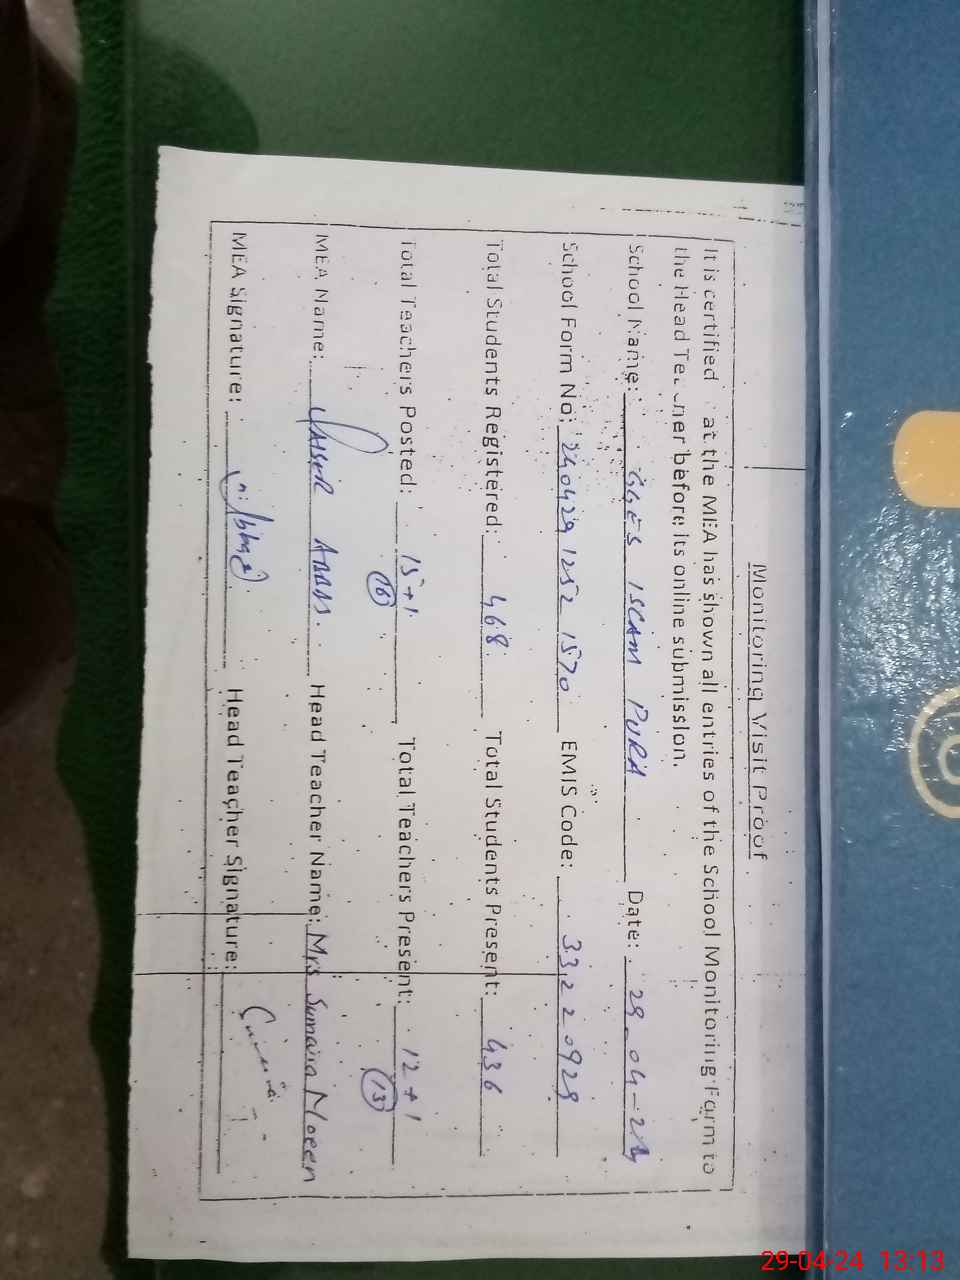 Monitoring Visit Proof
It is certified at the MEA has shown all entries of the School Monitoring Farm to
the Head Teacher before its online submission.
School Name: GGES ISLAM PURA Date: 29-04-24
School Form No: 240429 1252 1570 EMIS Code: 33220929
Total Students Registered: 468 Total Students Present: 436
Total Teachers Posted: 15+1 (16) Total Teachers Present: 12+1 (13)
MEA Name: QAISER ABBAS. Head Teacher Name: Mrs Sumaira Noeen
MEA Signature: Head Teacher Signature:
29-04-24 13:13